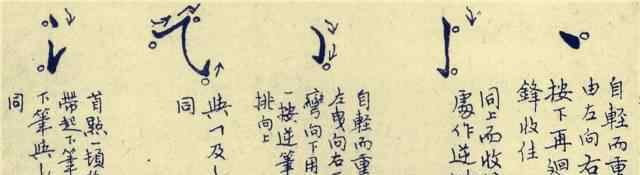 自輕而重
由左向右
按下再廻
鋒收住
同上而收
處作逆
自輕而重
左曳向右
彎向下用
一按逆筆
排向上
與㇀及
同
首點一頓
帶起下筆
下筆與
同